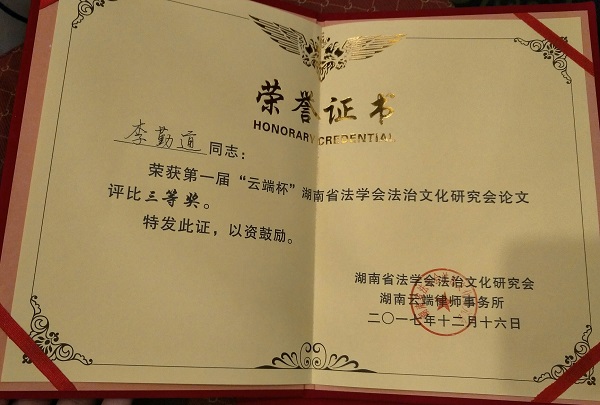 荣誉证书
HONORARY CREDENTIAL
李勤道 同志：
荣获第一届“云端杯”湖南省法学会法治文化研究会论文
评比三等奖。
特发此证，以资鼓励。
湖南省法学会法治文化研究会
湖南云端律师事务所
二〇一七年十二月十六日